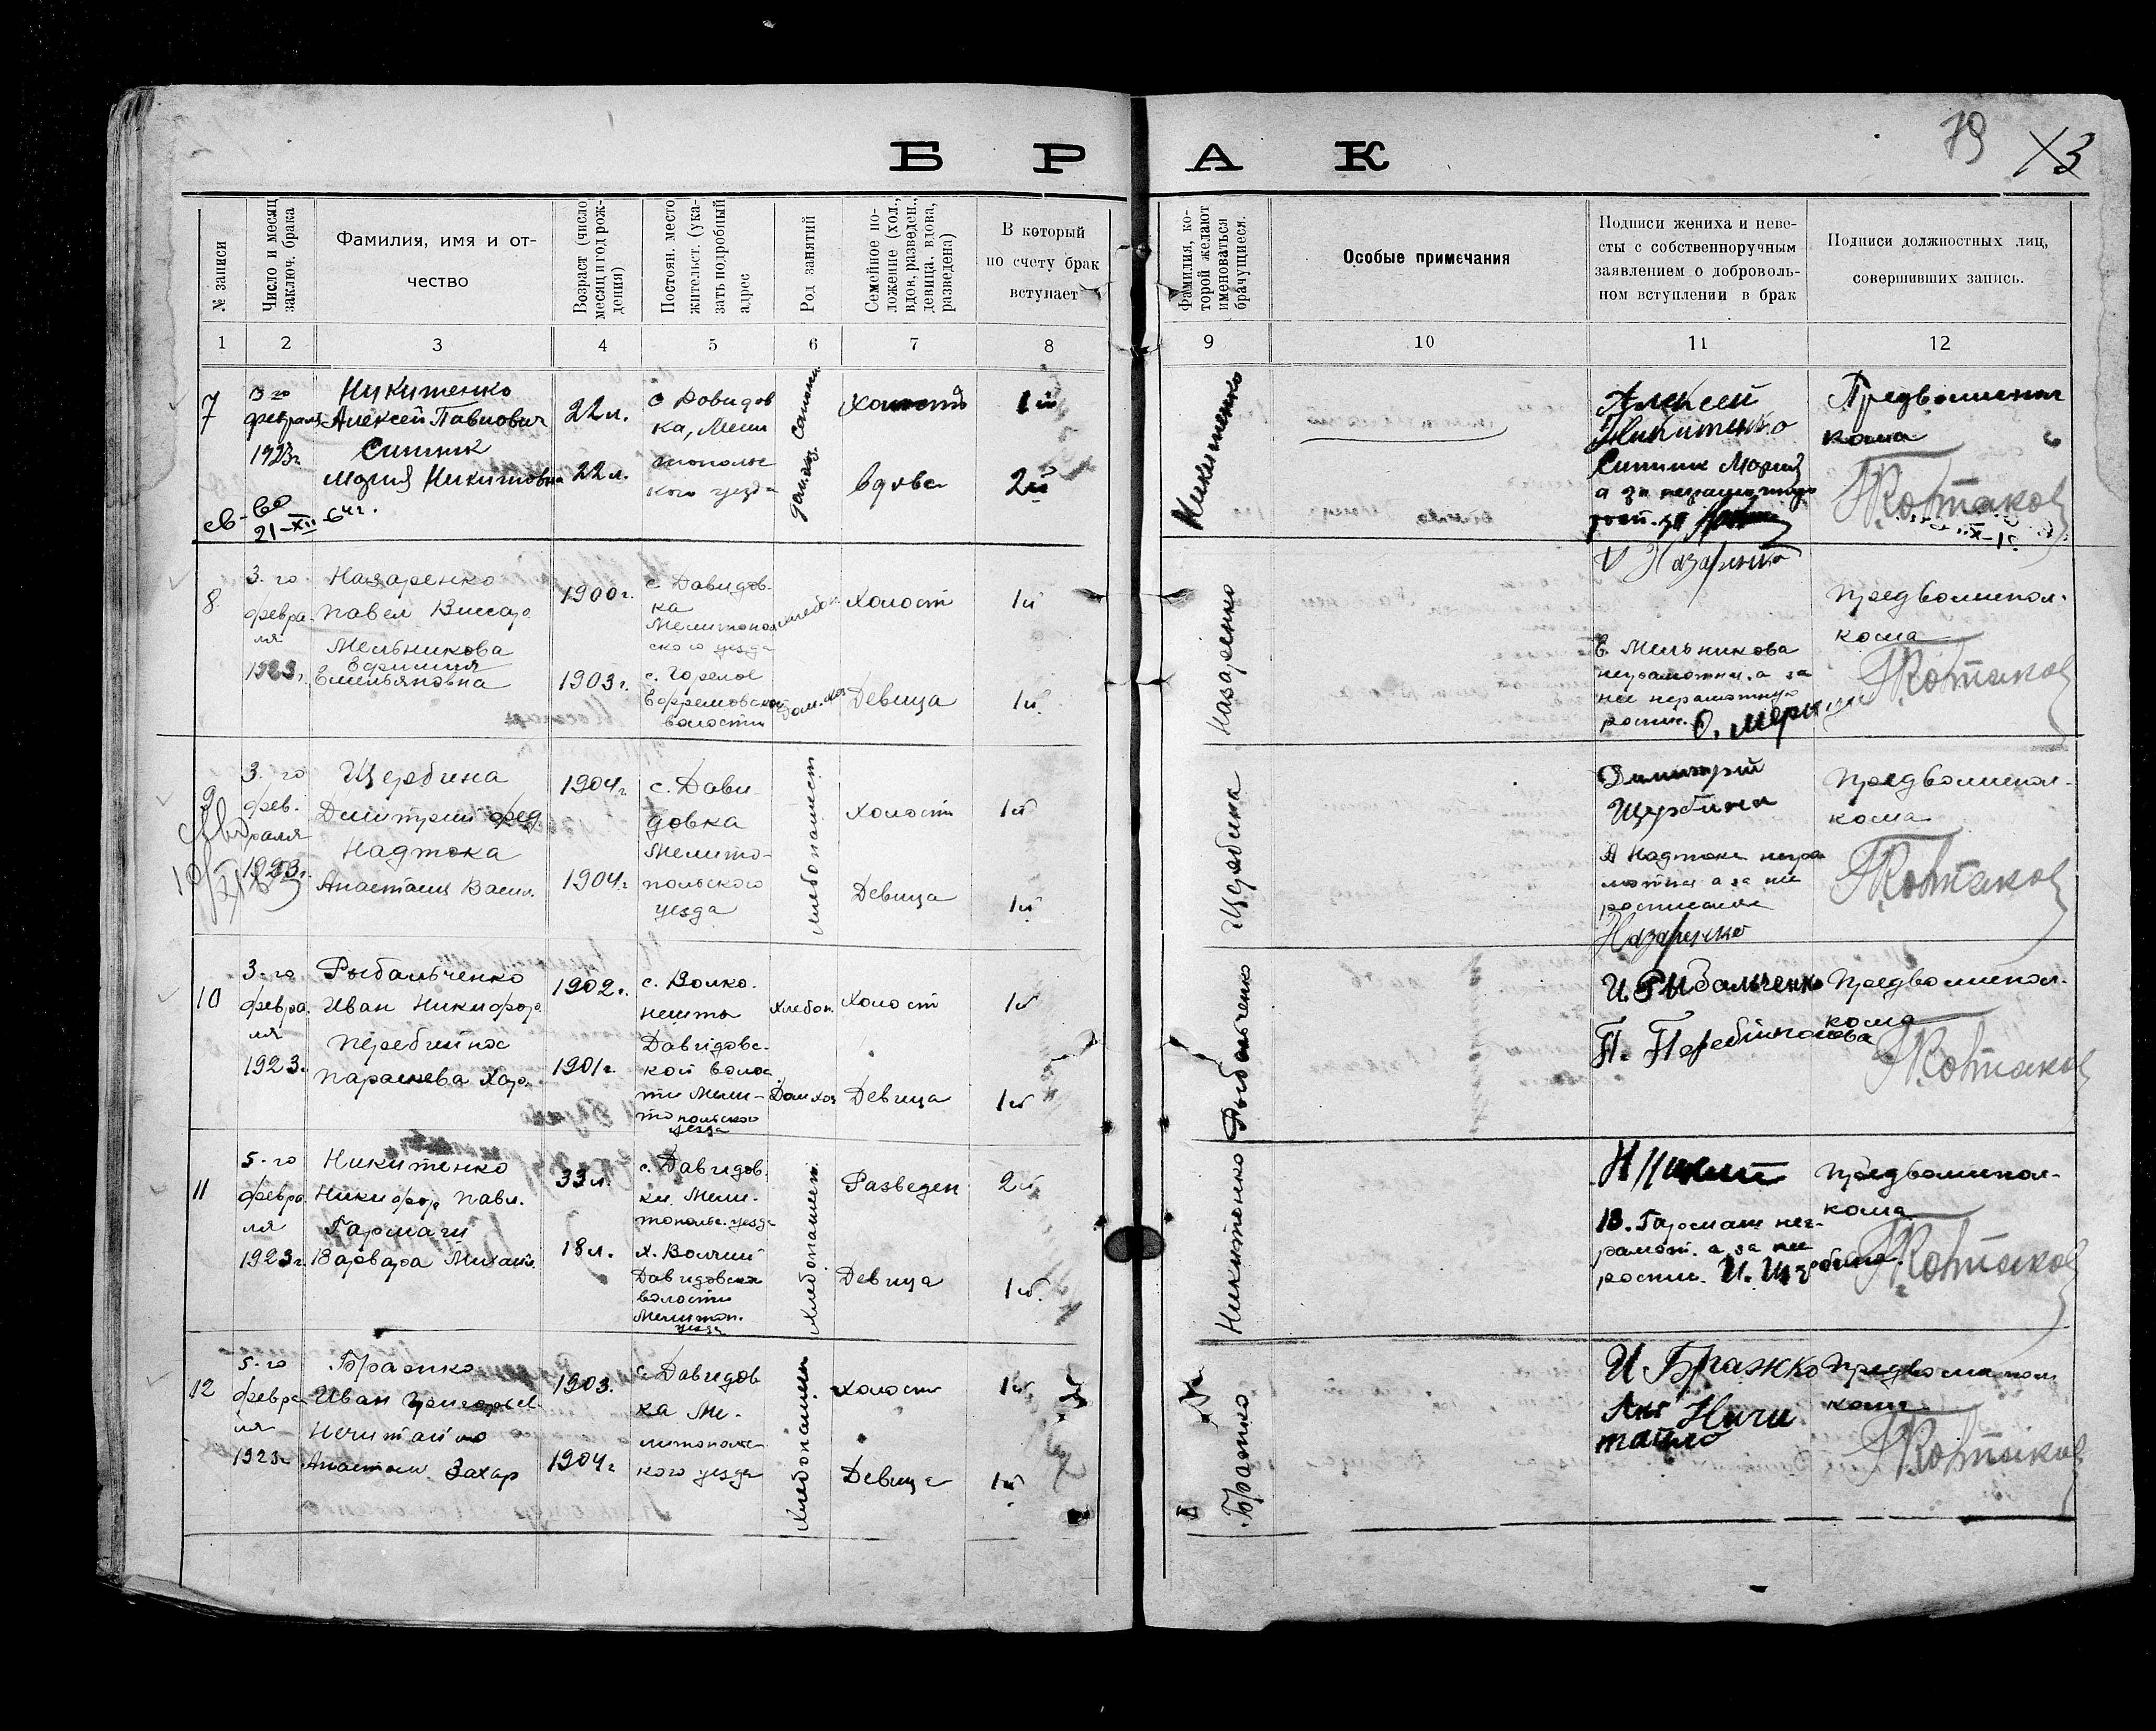 79
Б Р А К
№ записи
Число и месяц
заключ. брака
Фамилия, имя и от-
чество
Возраст (число
месяц и год рож-
дения)
Постоян. место
жительст. (ука-
зать подробный
адрес
Род занятий
Семейное по-
ложение (хол.,
вдов, разведен.,
девица, вдова,
разведена)
В который
по счету брак
вступает
Фамилия, ко-
торой желают
именоваться
брачущиеся.
Особые примечания
Подписи жениха и неве-
сты с собственноручным
заявлением о доброволь-
ном вступлении в брак
Подписи должностных лиц,
совершивших запись.
1 2 3 4 5 6 7 8 9 10 11 12
7
3 го
февраля
1923 г
Никитенко
Алексей Павлович
Мария Никитовна
22 л.
22 л.
с Довидов
ка, Мели
топольс
кого уезда
холост
вдова
1й
2й
Никитенко
Алексей
Никитенко
Мария
Предволиспол
кома
св-во
21-XII-64 г.
8
3. го
февра-
ля
1923 г.
Назаренко
Павел
Мельникова
Ефимия
Емельяновна
1900 г.
1903 г.
с. Давидов-
ка
Мелитополь
ского уезда
с. Горелое
Ефремовской
волости
хлебоп.
дом. хоз
Холост
Девица
1й
1й
Назаренко
Назаренко
Е. Мельникова
неграмотна, а за
нее неграмотную
роспис.
Предволиспол-
кома
9
3. го
фев-
раля
1923 г.
Щербина
Дмитрий Фед.
Надтока
Анастасия Васил.
1904 г
1904 г
с. Дави-
довка
Мелито-
польского
уезда
хлебопашест
холост
Девица
1й
1й
Щербина
Димитрий
Щербина
А Надтока негра
мотна а за нее
Назаренко
Предволиспол-
кома
10
3-го
февра
ля
1923.
Рыбальченко
Иван Никифор.
Перебийнос
Параскева Хар.
1902 г.
1901 г.
с. Волко-
нешты
Давидовс-
кой волос
ти Мели-
топольского
уезда
Хлебоп.
Дом хоз
Холост
Девица
1й
1й
Рыбальченко
И. Рыбальченко
Предволиспол-
кома
11
5-го
февра
ля
1923 г.
Никитенко
Никифор Павл.
Гармаш
Варвара Михайл.
33 л.
18 л.
с. Давидов-
ки Мели-
тополье. уезда
х. Волчий
Давидовск
волости
Мелитоп.
уезда
Хлебопашест.
Разведен
Девица
2й
1й.
Никитенко
В. Гармаш нег-
рамот. а за нее
роспис. И. Щербина.
Предволиспол-
кома
12
5-го
февра
ля
1923 г
Бражко
Иван Григорьев.
Нечитайло
Анастаси. Захар
1903.
1904 г
с Давидов
ка Ме-
литопольс
кого уезда
Хлебопашест
Холост
Девица
1й
1й
Бражко
И Бражко
Ничи
тайло
Предволиспол
кома